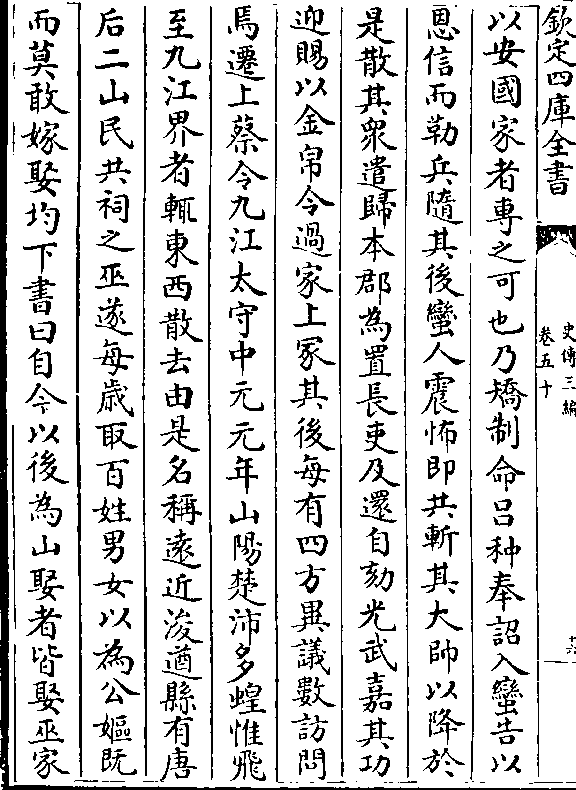 欽定四庫全書
史傳三編
卷五十
以安國家者專之可也乃矯制命吕种奉詔入蠻告以
恩信而勒兵隨其後蠻人震怖即共斬其大帥以降於
是散其衆遣歸本郡為置長吏及還自劾光武嘉其功
迎賜以金帛令過家上冢其後每有四方異議數訪問
焉遷上蔡令九江太守中元元年山陽楚沛多蝗惟飛
至九江界者輒東西散去由是名稱遠近浚遒縣有唐
后二山民共祠之巫遂每歳取百姓男女以為公嫗既
而莫敢嫁娶均下書曰自今以後為山娶者皆娶巫家